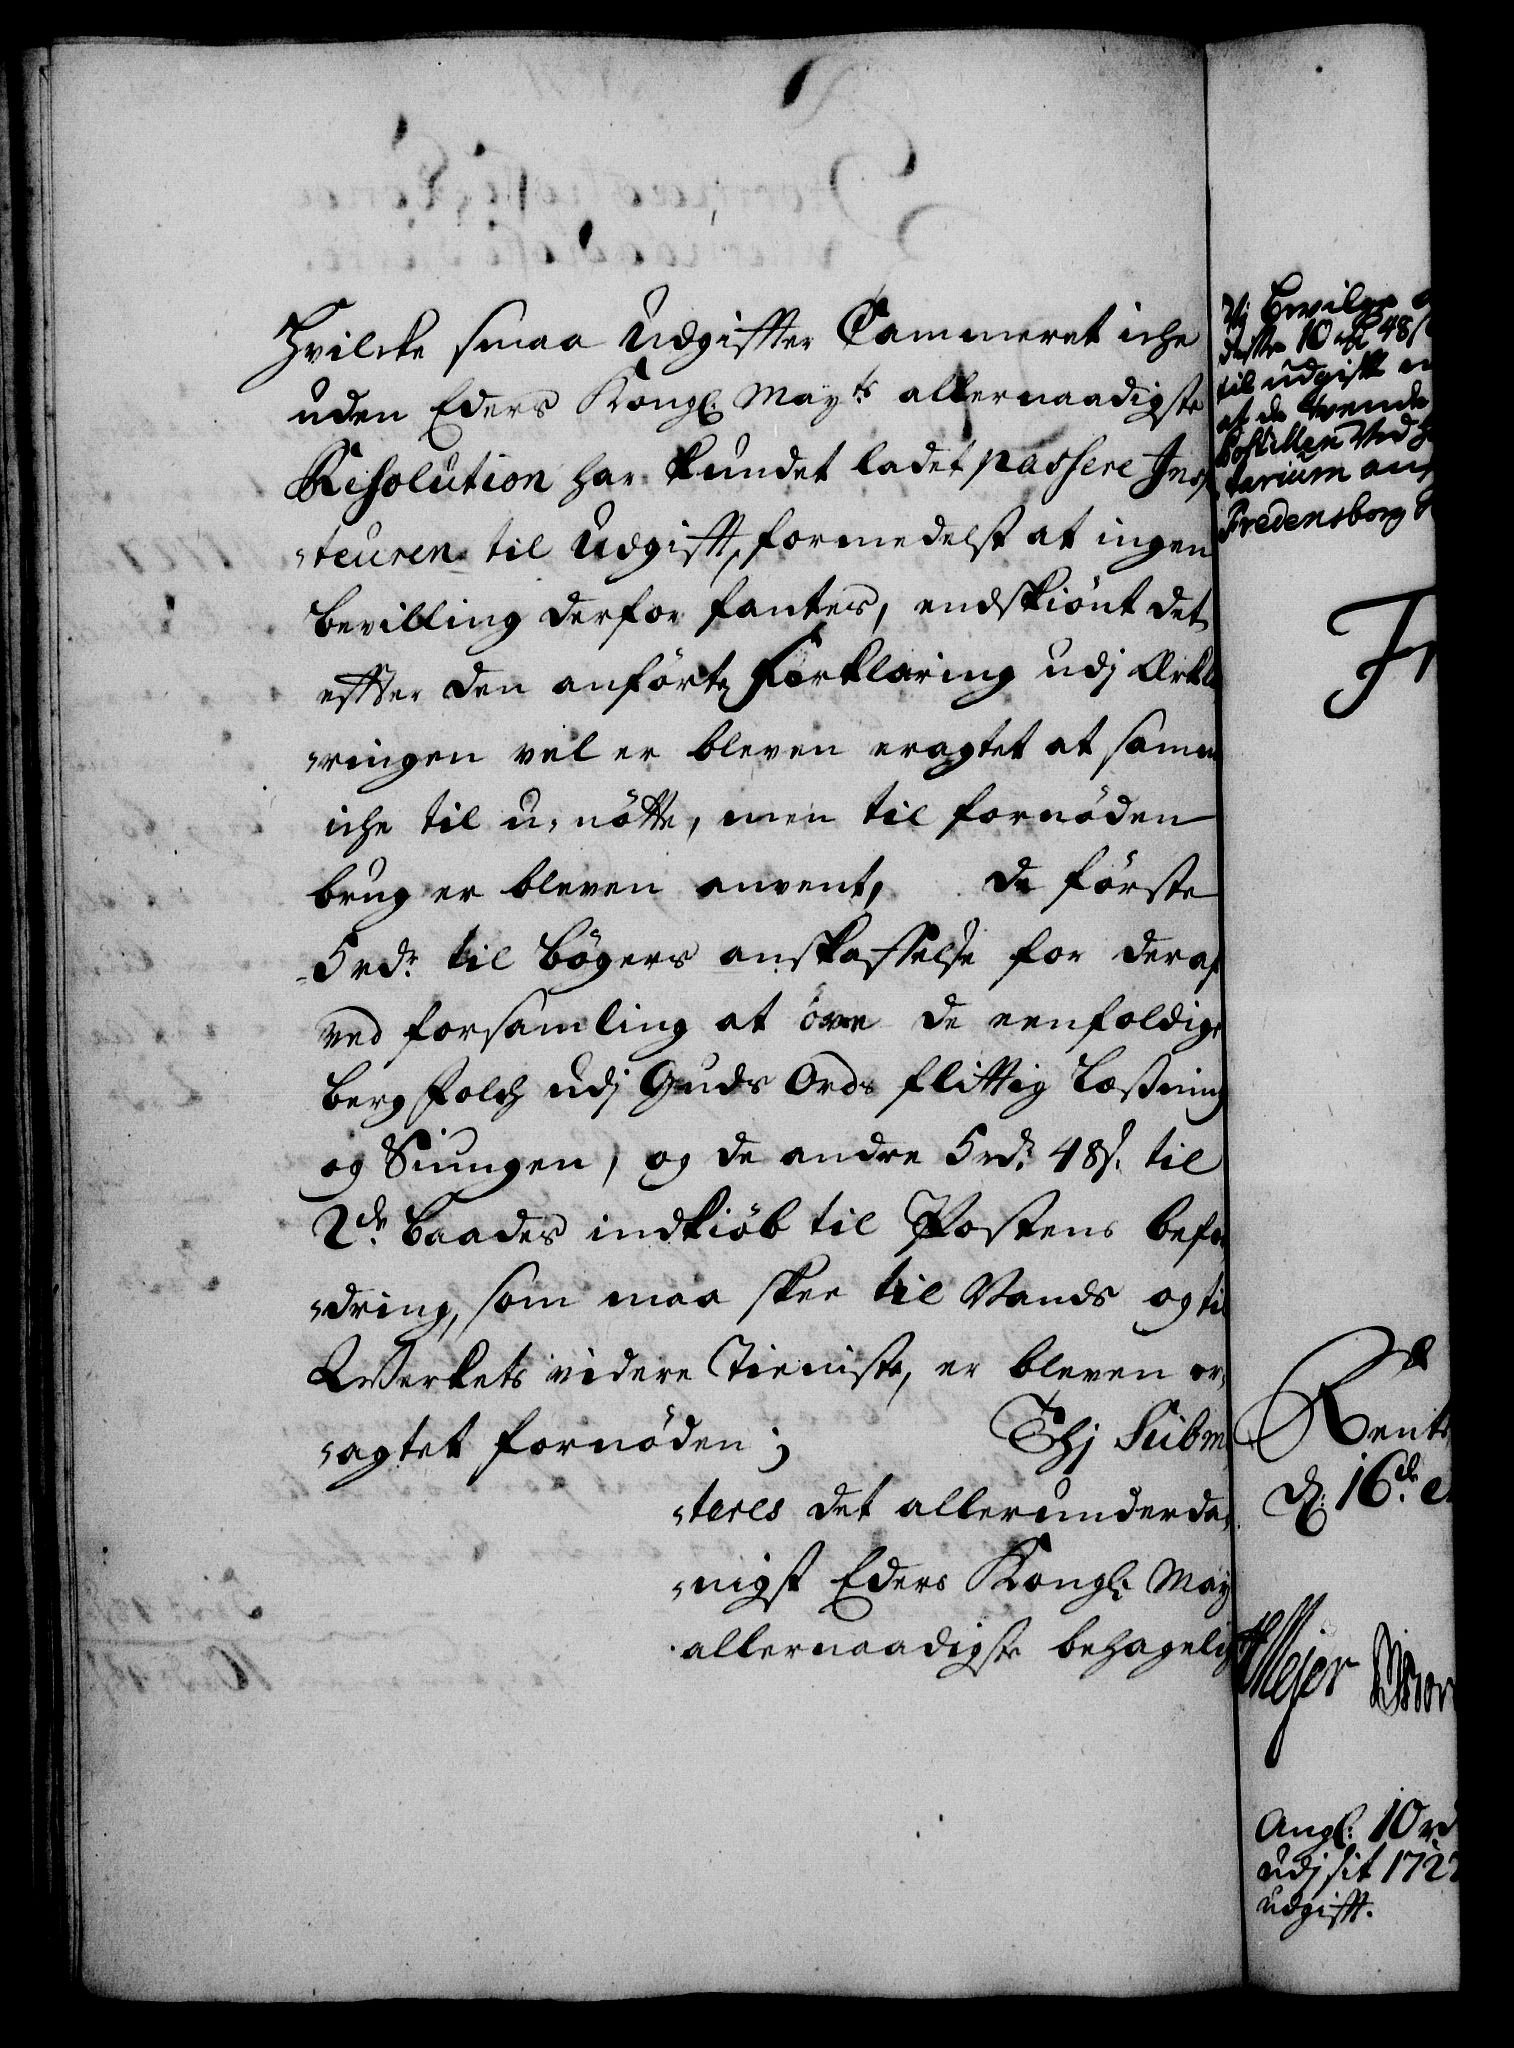 Hvilcke smaa Udgiffter Cammeret iche
uden Eders Kongl: Mayts allernaadigste
Resolution har kundet ladet passere Insp
teuren til Udgifft, formedelst at ingen
bevilling derfor fantes, endskiönt det
effter den anförte Forklaring udj Erklæ
ringen vel er bleven eragtet at samme
iche til u-nötte, men til fornöden
brug er bleven anvent, de förste
5 rdr til bögers anskaffelse for deraf
ved forsamling at öve de eenfoldige
berg folch udj Guds Ords flittig Læsning
og Siungen, og de andre 5 rdr 48 s. til
2de baades indkiöb til Postens befor
dring, som maa skee til Vands og til
Werkets videre Tieniste, er bleven er-
agtet fornöden;
Thj Submit
teres det allerunderda-
nigst Eders Kongl: May
allernaadigste behagelig
Vj bevilge
diste 10 rd 48 s
til udgifft
at de tvende
Poster Ved
tarium
Fredensborg
F
Rente
d: 16de
Mejer
Angl: 10 rd
udj sit 1727
udgifft.